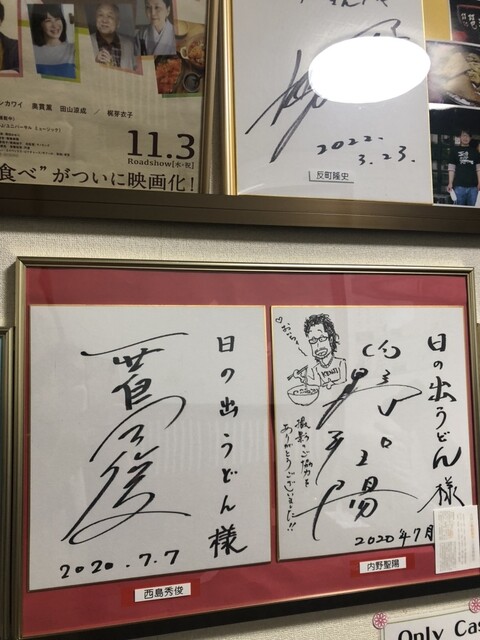 ンカワイ 奥貫薫 田山涼成 / 梶芽衣子
11.3
Roadshow[水・祝]
食べ”がついに映画化!
2022.
3.23.
反町隆史
日の出うどん様
2020.7.7
西島秀俊
日の出うどん様
撮影のご協力を
ありがとうございました!!
2020年7月
内野聖陽
Only Cas